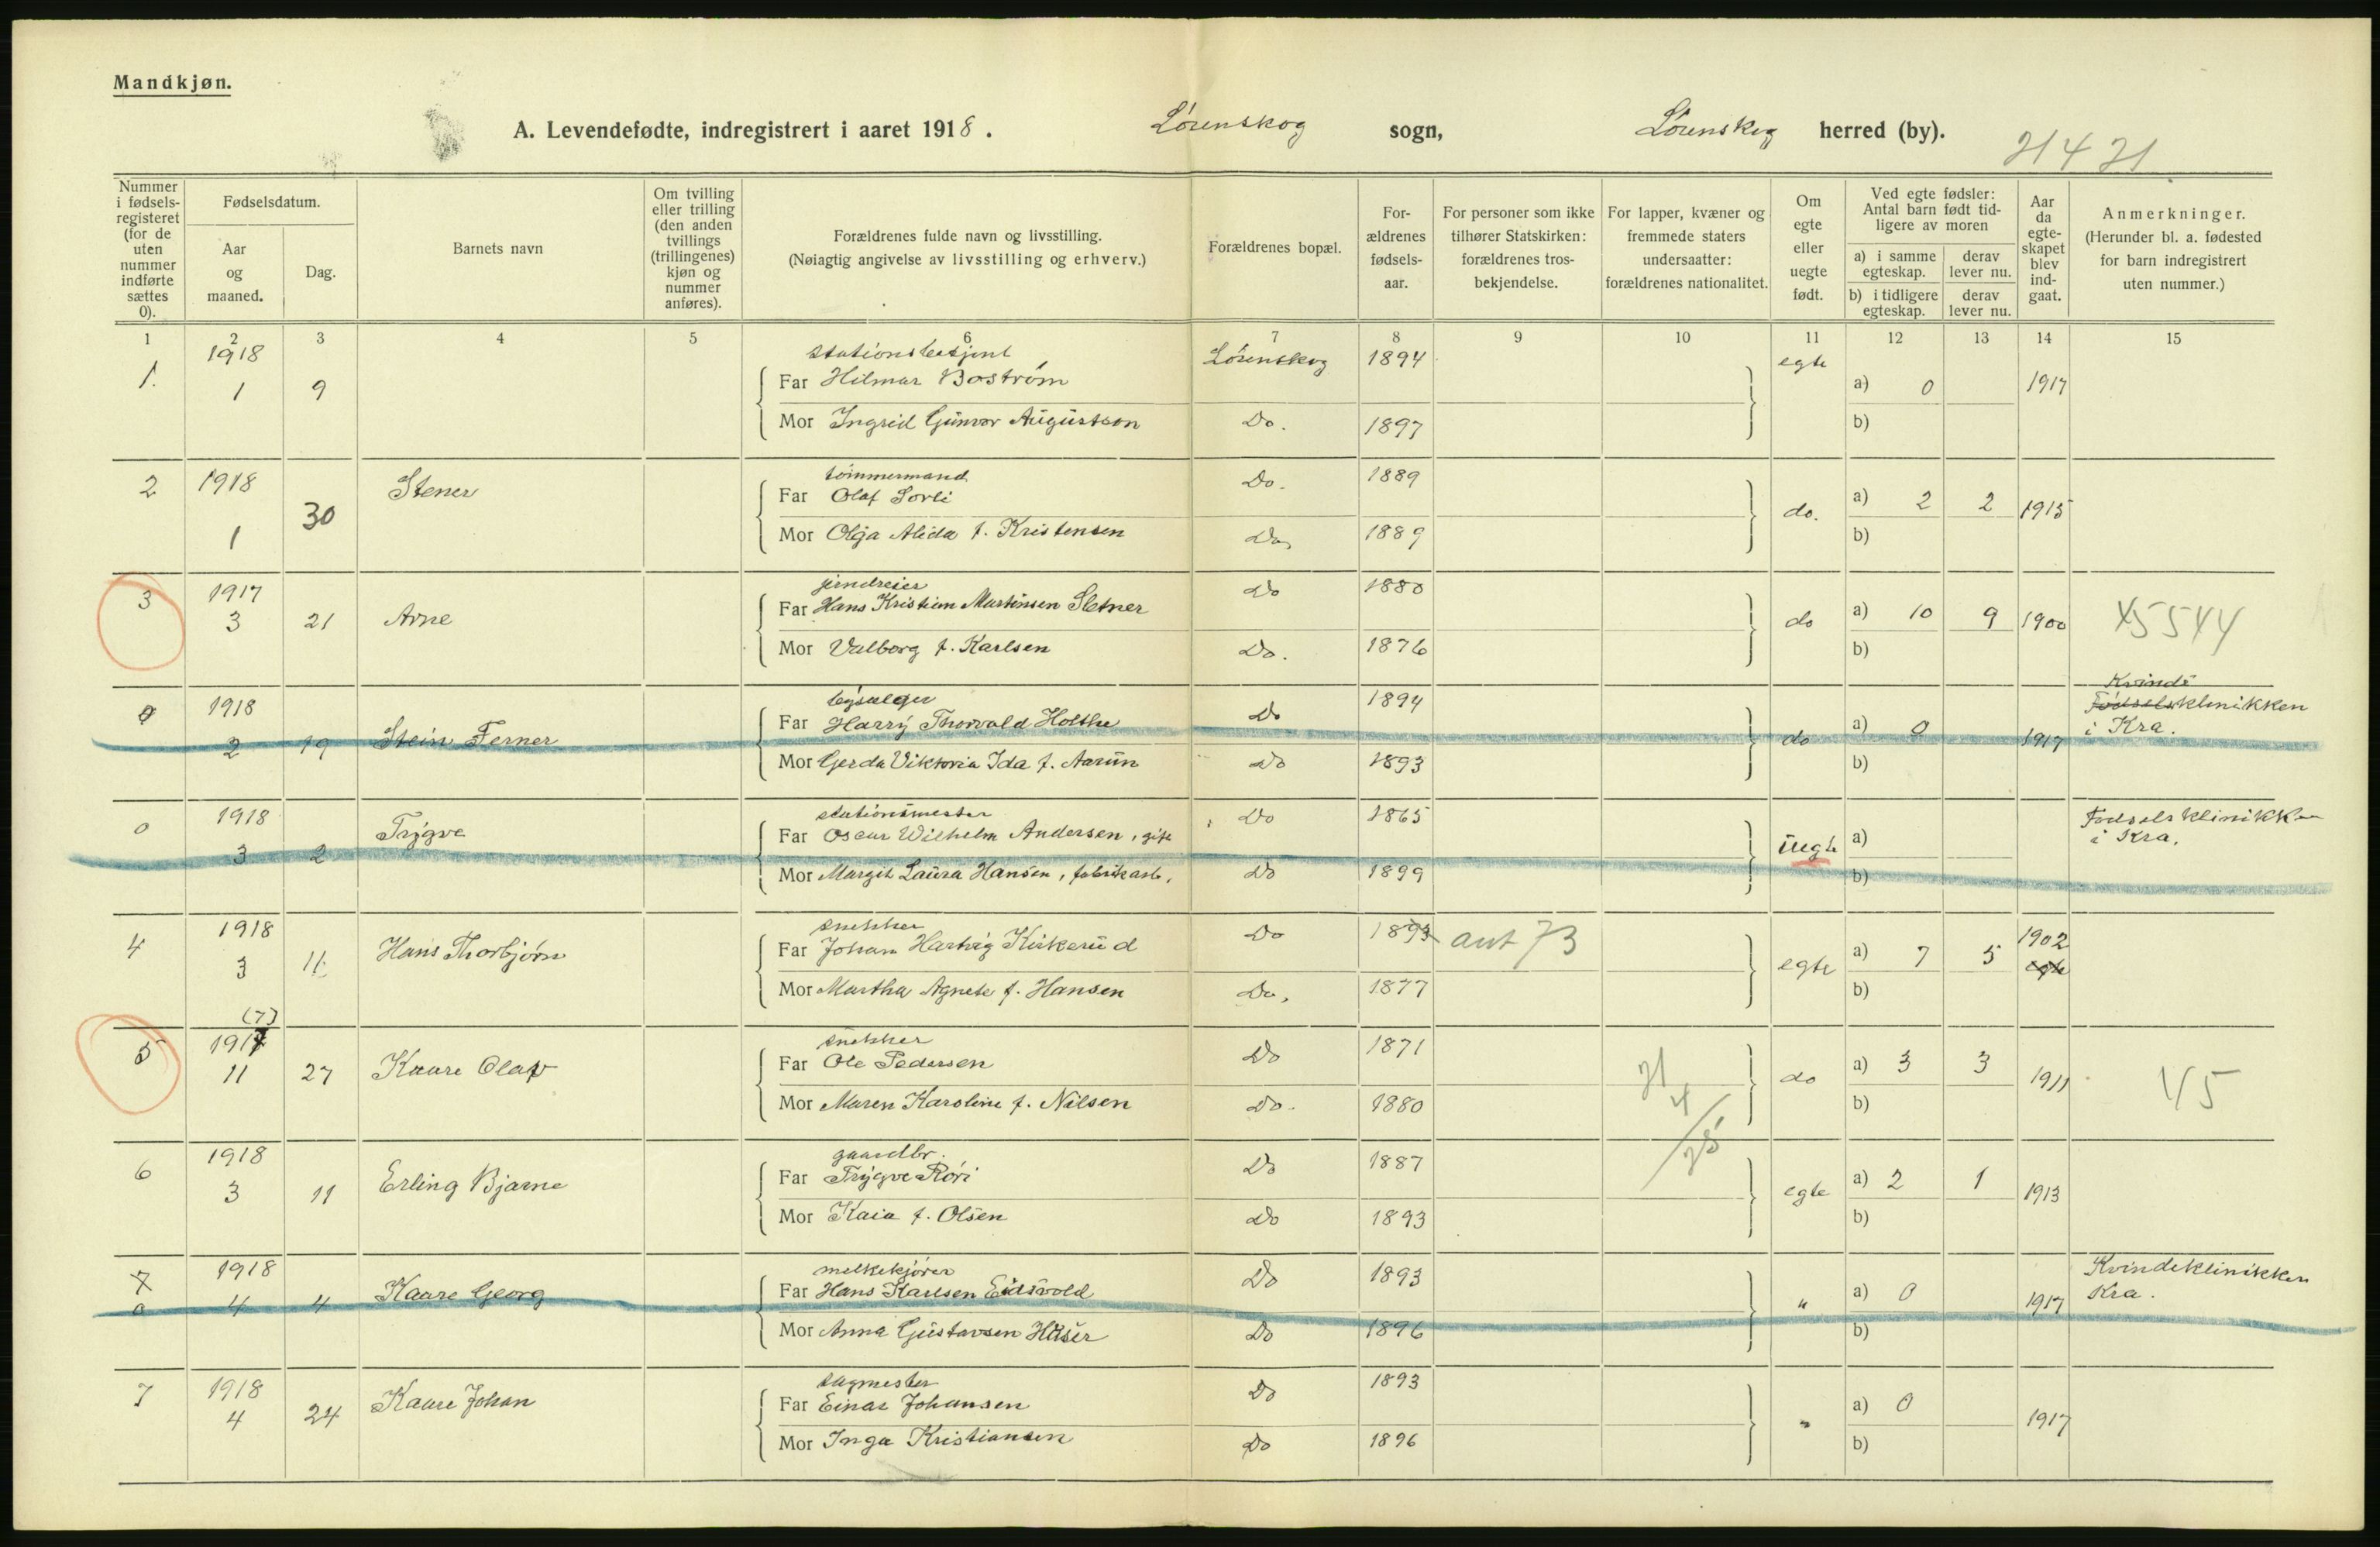 Mandkjøn.
A. Levendefødte, indregistrert i aaret 1918. Lørenskog sogn, Lørenskog herred (by).
21421
Nummer i fødsels-registeret (for de uten nummer indførte sættes 0). | Fødselsdatum. Aar og maaned. | Dag. | Barnets navn | Om tvilling eller trilling (den anden tvillings (trillingenes) kjøn og nummer anføres). | Forældrenes fulde navn og livsstilling. (Nøiagtig angivelse av livsstilling og erhverv.) | Forældrenes bopæl. | For-ældrenes fødsels-aar. | For personer som ikke tilhører Statskirken: forældrenes tros-bekjendelse. | For lapper, kvæner og fremmede staters undersaatter: forældrenes nationalitet. | Om egte eller uegte født. | Ved egte fødsler: Antal barn født tid-ligere av moren a) i samme egteskap. b) i tidligere egteskap. | derav lever nu. derav lever nu. | Aar da egte-skapet blev ind-gaat. | Anmerkninger. (Herunder bl. a. fødested for barn indregistrert uten nummer.)
1 2 3 4 5 6 7 8 9 10 11 12 13 14 15
1. 1918 1 9 stationsbetjent
Far Hilmar Boström Lørenskog 1894 egte a) 0 1917
Mor Ingrid Gunvor Augustson Do. 1897 b)
2 1918 1 30 Stener tømmermand
Far Olaf Sorli Do. 1889 do. a) 2 2 1915
Mor Olga Alida f. Kristensen Do, 1889 b)
3 1917 3 21 Arne
Far Hans Kristian Martinsen Sletner Do 1880 do a) 10 9 1900 45544
Mor Valborg f. Karlsen Do. 1876 b)
0 1918 2 19 Stein Ferner bysælger
Far Harry Thorvald Holthe Do 1894 do a) 0 1917 Kvinde Fødselsklinikken i Kra.
Mor Gerda Viktoria Ida f. Aarun Do 1893 b)
0 1918 3 2 Trygve stationsmester
Far Oscar Wilhelm Andersen, gift Do 1865 uegte a) Fødselsklinikken i Kra.
Mor Margit Laura Hansen, fabrikarb. Do 1899 b)
4 1918 3 11 Hans Thorbjørn snekker
Far Johan Hartvig Kirkerud Do 1893 ant 73 egte a) 7 5 1902 egte
Mor Martha Agnete f. Hansen Do, 1877 b)
5 (7) 1917 11 27 Kaare Olav snekker
Far Ole Pedersen Do 1871 do a) 3 3 1911 45
Mor Maren Karoline f. Nilsen Do. 1880 21 4 b)
6 1918 3 11 Erling Bjarne gaardbr.
Far Trygve Röri Do 1887 egte a) 2 1 1913
Mor Kaia f. Olsen Do 1893 b)
7 0 1918 4 4 Kaare Georg melkekjører
Far Hans Karlsen Eidsvold Do 1893 " a) 0 1917 Kvindeklinikken Kra.
Mor Anna Gustavsen Do 1896 b)
7 1918 4 24 Kaare Johan sagmester
Far Einar Johansen Do 1893 " a) 0 1917
Mor Inga Kristiansen Do 1896 b)